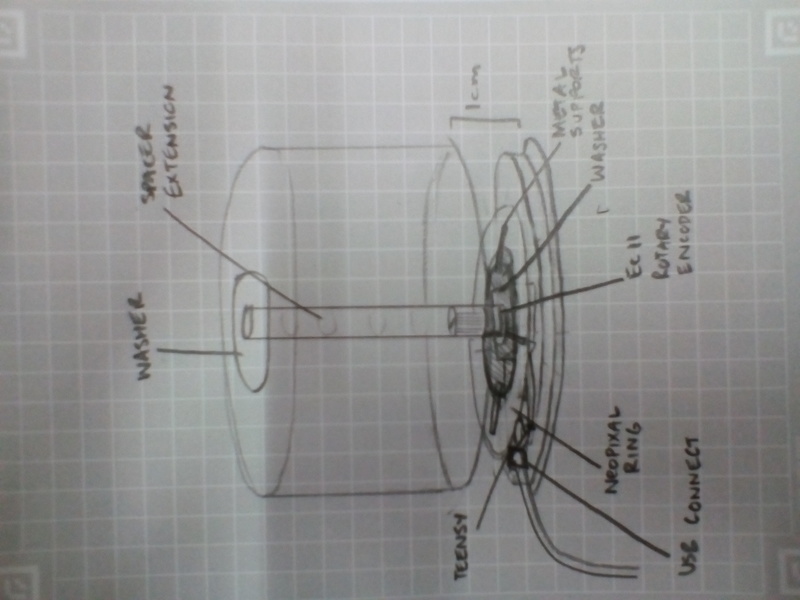 SPACER
EXTENSION
WASHER
1cm
METAL
SUPPORTS
WASHER
EC11
ROTARY
ENCODER
NEOPIXAL
RING
USB CONNECT
TEENSY